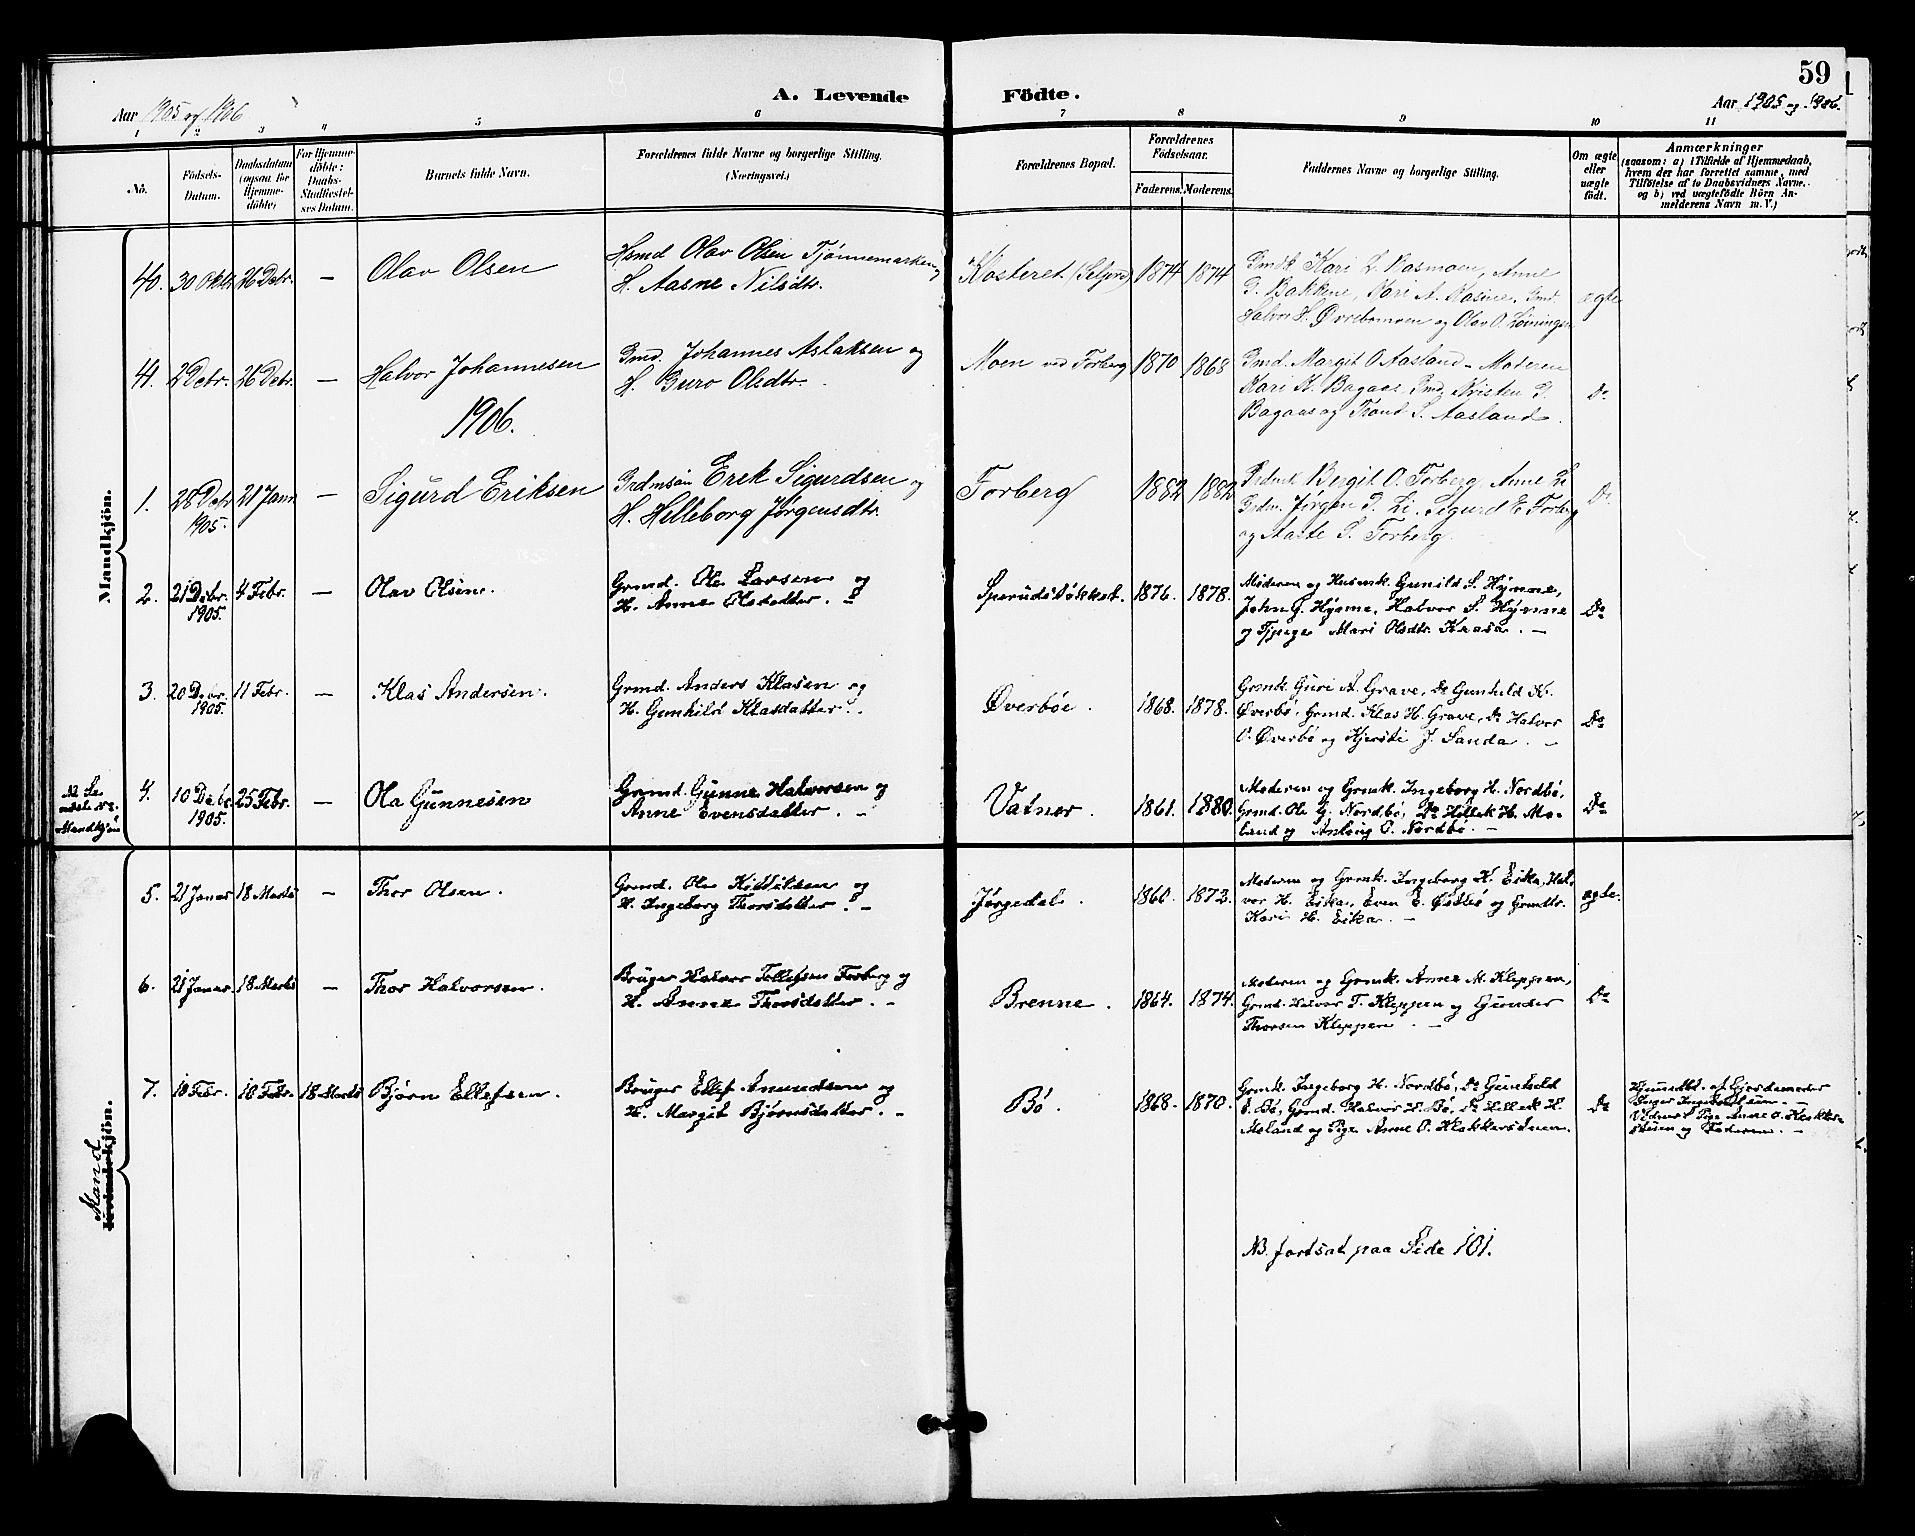 59
A. Levende Födte.
Aar 1905 og 1906
Aar 1905 og 1906.
1 2 3 4 5 6 7 8 9 10 11
No.
Födsels-
Datum.
Daabsdatum
(ogsaa for
Hjemme-
döbte)
For Hjemme-
döbte:
Daabs-
Stadfæstel-
ses Datum.
Barnets fulde Navn.
Forældrenes fulde Navne og borgerlige Stilling.
(Næringsvei.)
Forældrenes Bopæl.
Forældrenes
Födselsaar.
Faderens. Moderens.
Faddernes Navne og borgerlige Stilling.
Om ægte
eller
uægte
födt.
Anmærkninger
(saasom: a) i Tilfælde af Hjemmedaab,
hvem der har forrettet samme, med
Tilföielse af to Daabsvidners Navne.
og b) ved uægtefödte Börn An-
melderens Navn m. V.)
Mandkjön.
40. 30 Oktbr 26 Debr. — Olav Olsen
Hsmd Olav Olsen Tjønnemarken og
H. Aasne Nilsdtr.
Kosteret (Seljord) 1874 1874
Gmdk Kari L. Rasmoen, Anne
G. Bakkene, Kari A. Kasine, Gmd.
Halvor H. Øvrebomoen og Olav O. Løiningen
ægte
41. 2 Debr. 26 Debr. — Halvor Johannesen
Gmd. Johannes Aslaksen og
H. Guro Olsdtr.
Moen ved Forberg 1870 1868
Gmd. Margit O. Aasland - Moderen
Kari K. Bagaas, Gmd. Kristen G.
Bagaas og Trond S. Aasland.
Do
1906.
1. 28 Debr 1905. 21 Janr — Sigurd Eriksen
Grdmsön Erek Sigurdsen og
H. Helleborg Jørgensdtr.
Forberg 1882 1882
Grdmk Bergit O. Forberg, Anne Li
Grdm. Jørgen G. Li, Sigurd E. Forberg
og Aaste S. Forberg.
Do
2. 21 Debr. 1905. 4 Febr. — Olav Olsen.
Grmd. Ole Larsen og
H. Anne Olsdatter.
Sperudsløkket. 1876. 1878.
Moderen og Husmk. Gunild S. Hynne,
John G. Hynne, Halvor S. Hynne
og Tjpige Mari Olsdtr. Krasa. —
Do
3. 20 Debr. 1905. 11 Febr. — Klas Andersen.
Grmd. Anders Klasen og
H. Gunhild Klasdatter.
Øverbøe. 1868. 1878.
Grmk. Guri A. Grave, Do Gunhild K.
Øverbø, Grmd. Klas H. Grave, Do Halvor
O. Øverbø og Kjersti J. Sanda. —
Do
4. 10 Debr. 1905. 25 Febr. — Ola Gunnesen
Grmd. Gunne Halvorsen og
Anne Evensdatter. —
Vatnar. 1861. 1880.
Moderen og Grmk. Ingeborg H. Nordbø,
Grmd. Ole G. Nordbø, Do Hellek H. Mo-
land og Anlaug O. Nordbø. —
Do
Mandkjön
Mand
Kvindekjön.
5. 21 Januar 18 Marts — Thor Olsen.
Grmd. Ole Kittilsen og
H. Ingeborg Thorsdatter. —
Jørgedal. 1860. 1872.
Moderen og Grmk. Ingeborg K. Eika, Hal-
vor H. Eika, Even E. Østbø og Grmdtr.
Kari H. Eika. —
ægte.
6. 21 Januar. 18 Marts — Thor Halvorsen.
Brüger Halvor Tollefsen Forberg og
H. Anne Thorsdatter. —
Brenne. 1864. 1874.
Moderen og Grmk. Anne M. Kleppen,
Grmd. Halvor T. Kleppen og Gunder
Thorsen Kleppen. —
Do
7. 10 Febr. 10 Febr. 18 Marts Bjørn Ellefsen.
Brüger Ellef Amundsen og
H. Margit Bjørnsdatter. —
Bø. 1868. 1870.
Grmk. Ingeborg H. Nordbø, Do Gunhild
O. Bø, Grmd. Halvor H. Bø, Do Hellek H.
Moland og Pige Anne O. Klakkersteen.
Do
Hjemdbt. af Gjordemoder
Vidner: Pige Anne O. Klakker-
steen og Faderen. —
NB. fortsat paa Side 101.